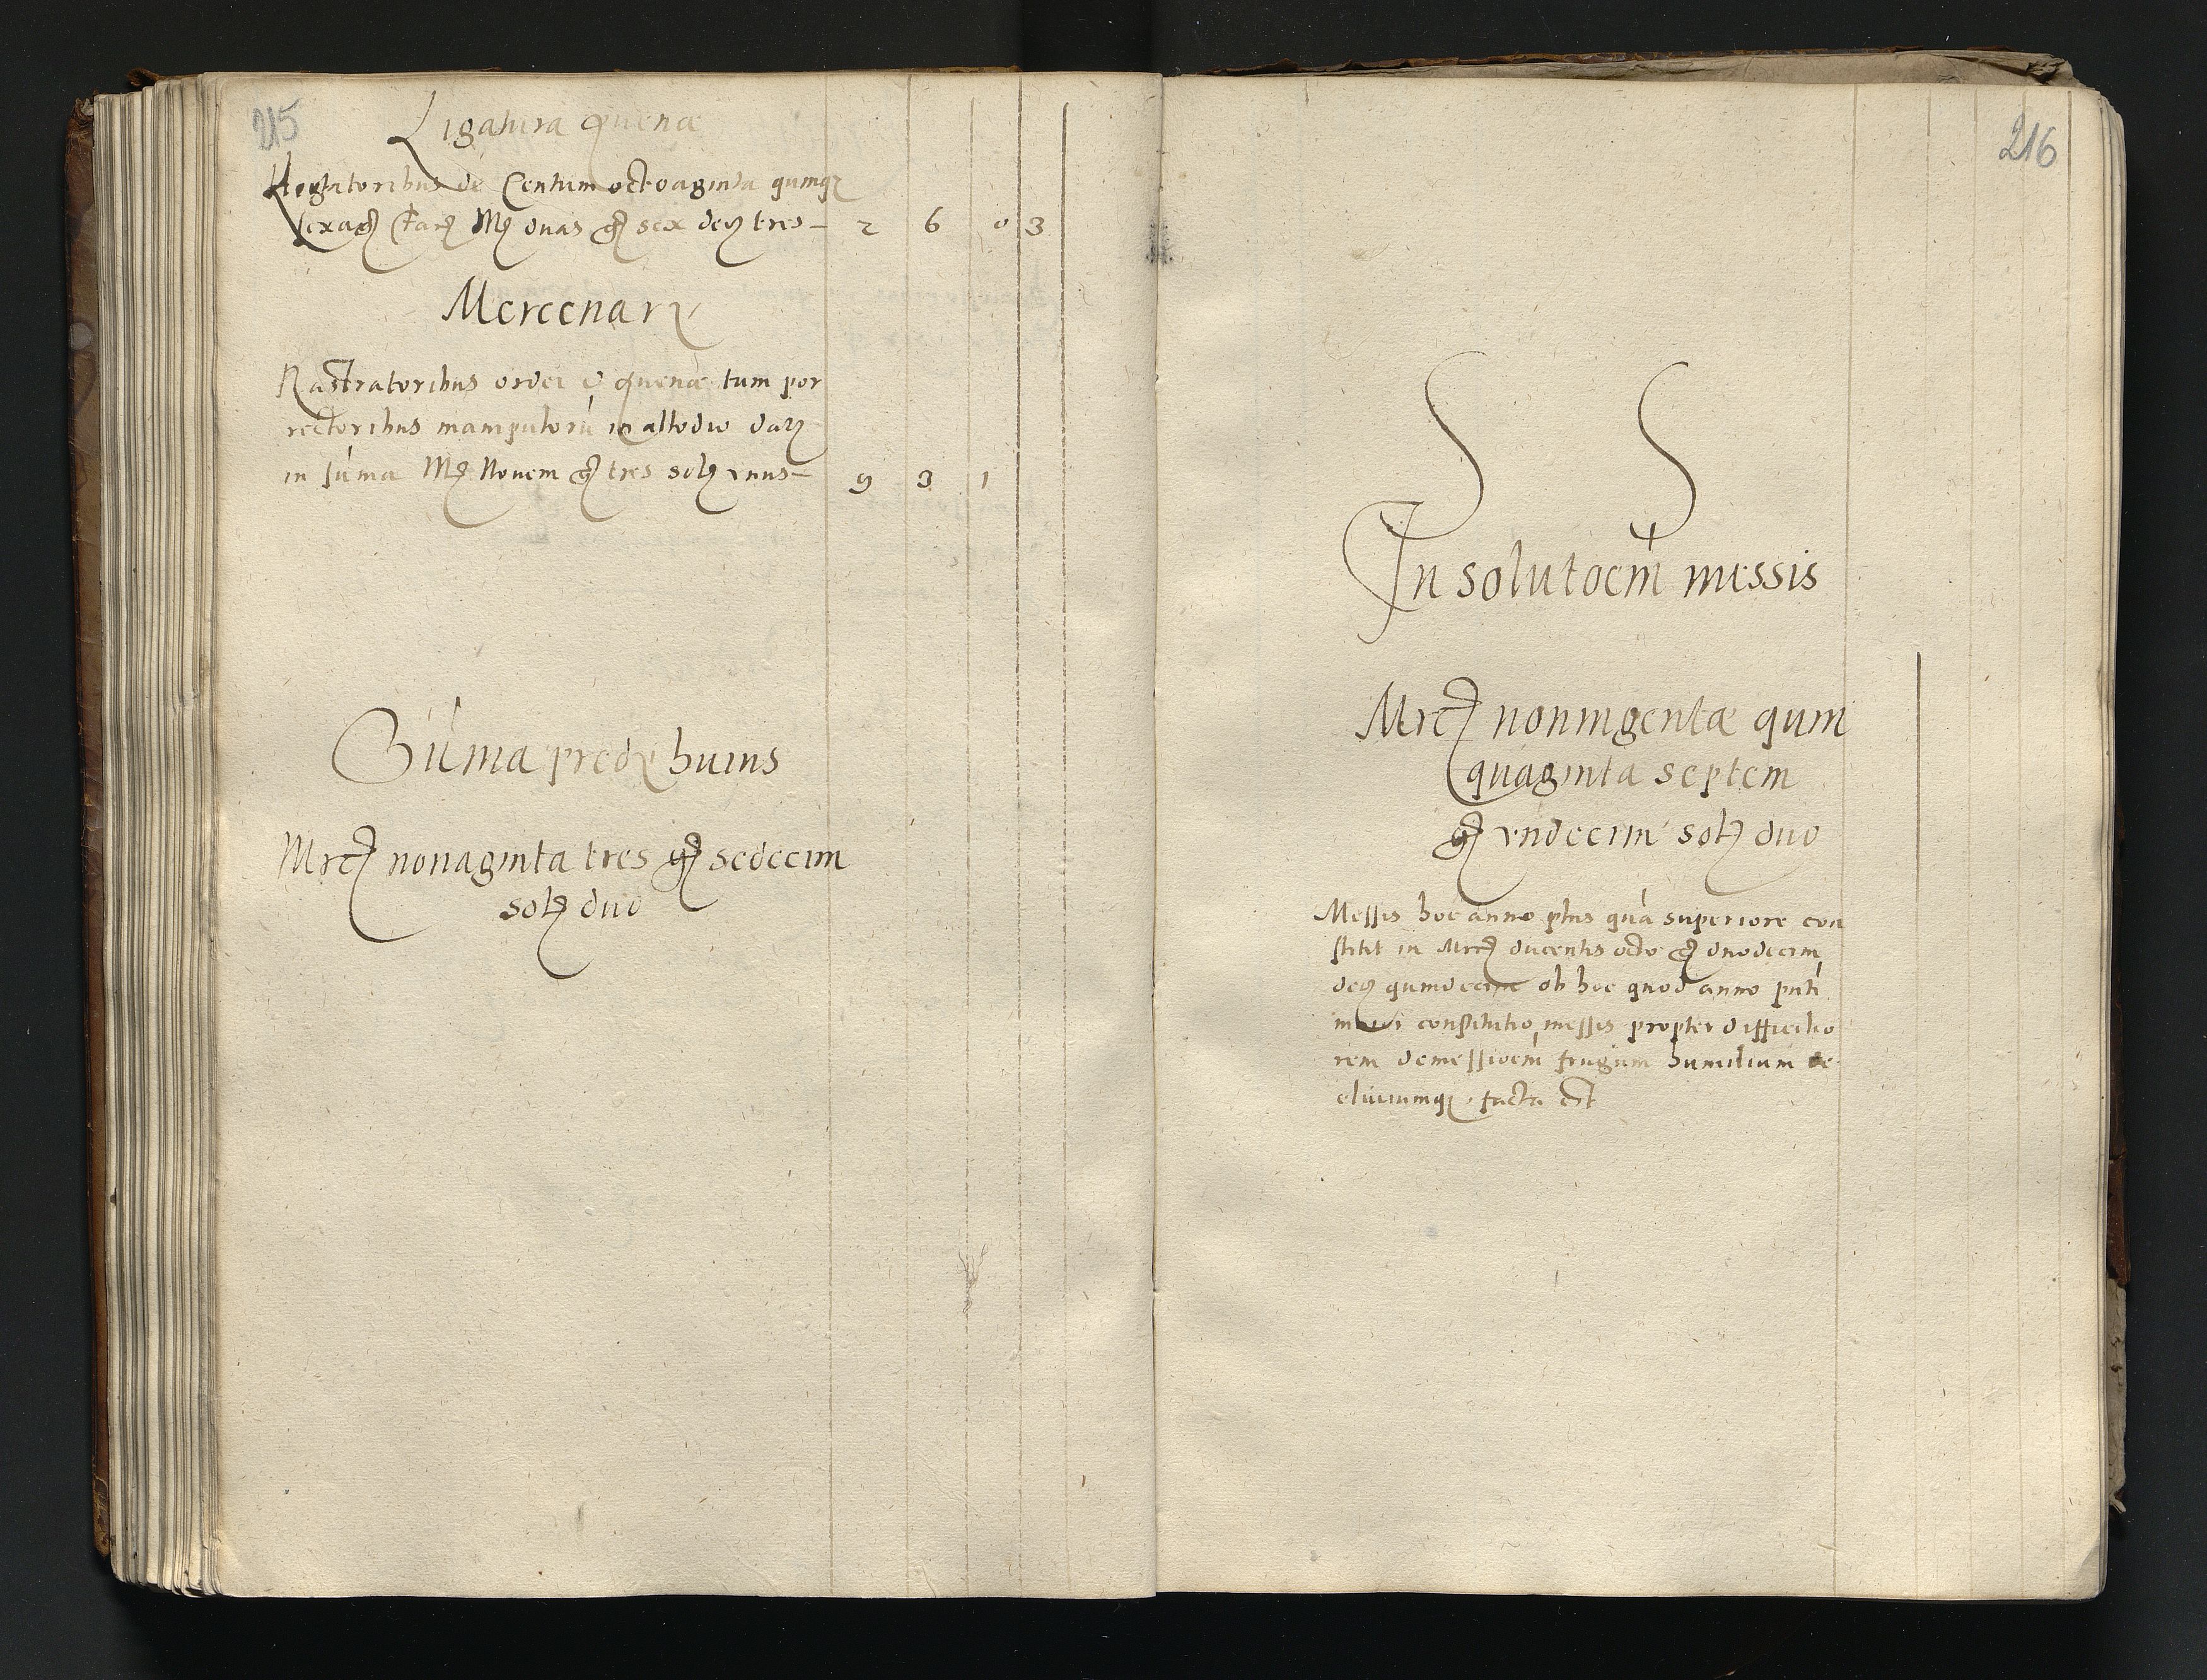 215
Ligatura avenæ
de Centum octoaginta quinq
sexag Mg duas g sex deŋ tres – 2 6 0 3
Mercenarij
Rastratoribus ordei & avenæ tum por
rectoribus manipulorū in allodio datŋ
in sūma Mg Novem g tres solŋ vnus – 9 3 1
Sūma predŋ huius
Mrcŋ nonaginta tres g sedecim
solŋ duo
216
S S
In solutoēm messis
Mrcŋ noningentæ quin
quaginta septem
g vndecim solŋ duo
Messis hoc anno plus quā superiore con
stitit in Mrcŋ ducentis octo g duodecim
deŋ quindecim ob hoc quod anno pnti
constitutio messis propter difficilio
rem demessioēm frugum humilium de
cliviumq facta est